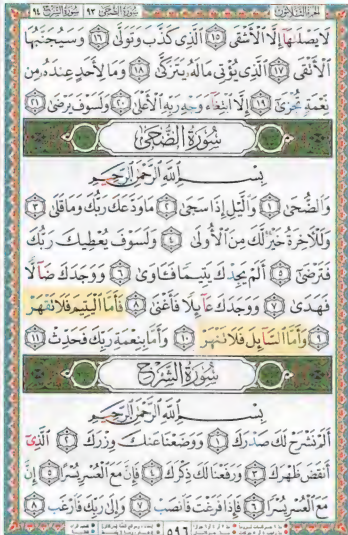 الجزء الثلاثون سورة الضحى ٩٣ سورة الشرح ٩٤
لَا يَصْلَىٰهَآ إِلَّا ٱلْأَشْقَى ١٥ ٱلَّذِى كَذَّبَ وَتَوَلَّىٰ ١٦ وَسَيُجَنَّبُهَا
ٱلْأَتْقَى ١٧ ٱلَّذِى يُؤْتِى مَالَهُۥ يَتَزَكَّىٰ ١٨ وَمَا لِأَحَدٍ عِندَهُۥ مِن
نِّعْمَةٍ تُجْزَىٰٓ ١٩ إِلَّا ٱبْتِغَآءَ وَجْهِ رَبِّهِ ٱلْأَعْلَىٰ ٢٠ وَلَسَوْفَ يَرْضَىٰ ٢١
سُورَةُ الضُّحَىٰ
بِسْمِ ٱللَّهِ ٱلرَّحْمَٰنِ ٱلرَّحِيمِ
وَٱلضُّحَىٰ ١ وَٱلَّيْلِ إِذَا سَجَىٰ ٢ مَا وَدَّعَكَ رَبُّكَ وَمَا قَلَىٰ ٣
وَلَلْءَاخِرَةُ خَيْرٌ لَّكَ مِنَ ٱلْأُولَىٰ ٤ وَلَسَوْفَ يُعْطِيكَ رَبُّكَ
فَتَرْضَىٰٓ ٥ أَلَمْ يَجِدْكَ يَتِيمًا فَـَٔاوَىٰ ٦ وَوَجَدَكَ ضَآلًّا
فَهَدَىٰ ٧ وَوَجَدَكَ عَآئِلًا فَأَغْنَىٰ ٨ فَأَمَّا ٱلْيَتِيمَ فَلَا تَقْهَرْ
٩ وَأَمَّا ٱلسَّآئِلَ فَلَا تَنْهَرْ ١٠ وَأَمَّا بِنِعْمَةِ رَبِّكَ فَحَدِّثْ ١١
سُورَةُ الشَّرْحِ
بِسْمِ ٱللَّهِ ٱلرَّحْمَٰنِ ٱلرَّحِيمِ
أَلَمْ نَشْرَحْ لَكَ صَدْرَكَ ١ وَوَضَعْنَا عَنكَ وِزْرَكَ ٢ ٱلَّذِىٓ
أَنقَضَ ظَهْرَكَ ٣ وَرَفَعْنَا لَكَ ذِكْرَكَ ٤ فَإِنَّ مَعَ ٱلْعُسْرِ يُسْرًا ٥ إِنَّ
مَعَ ٱلْعُسْرِ يُسْرًا ٦ فَإِذَا فَرَغْتَ فَٱنصَبْ ٧ وَإِلَىٰ رَبِّكَ فَٱرْغَب ٨
٥٩٦